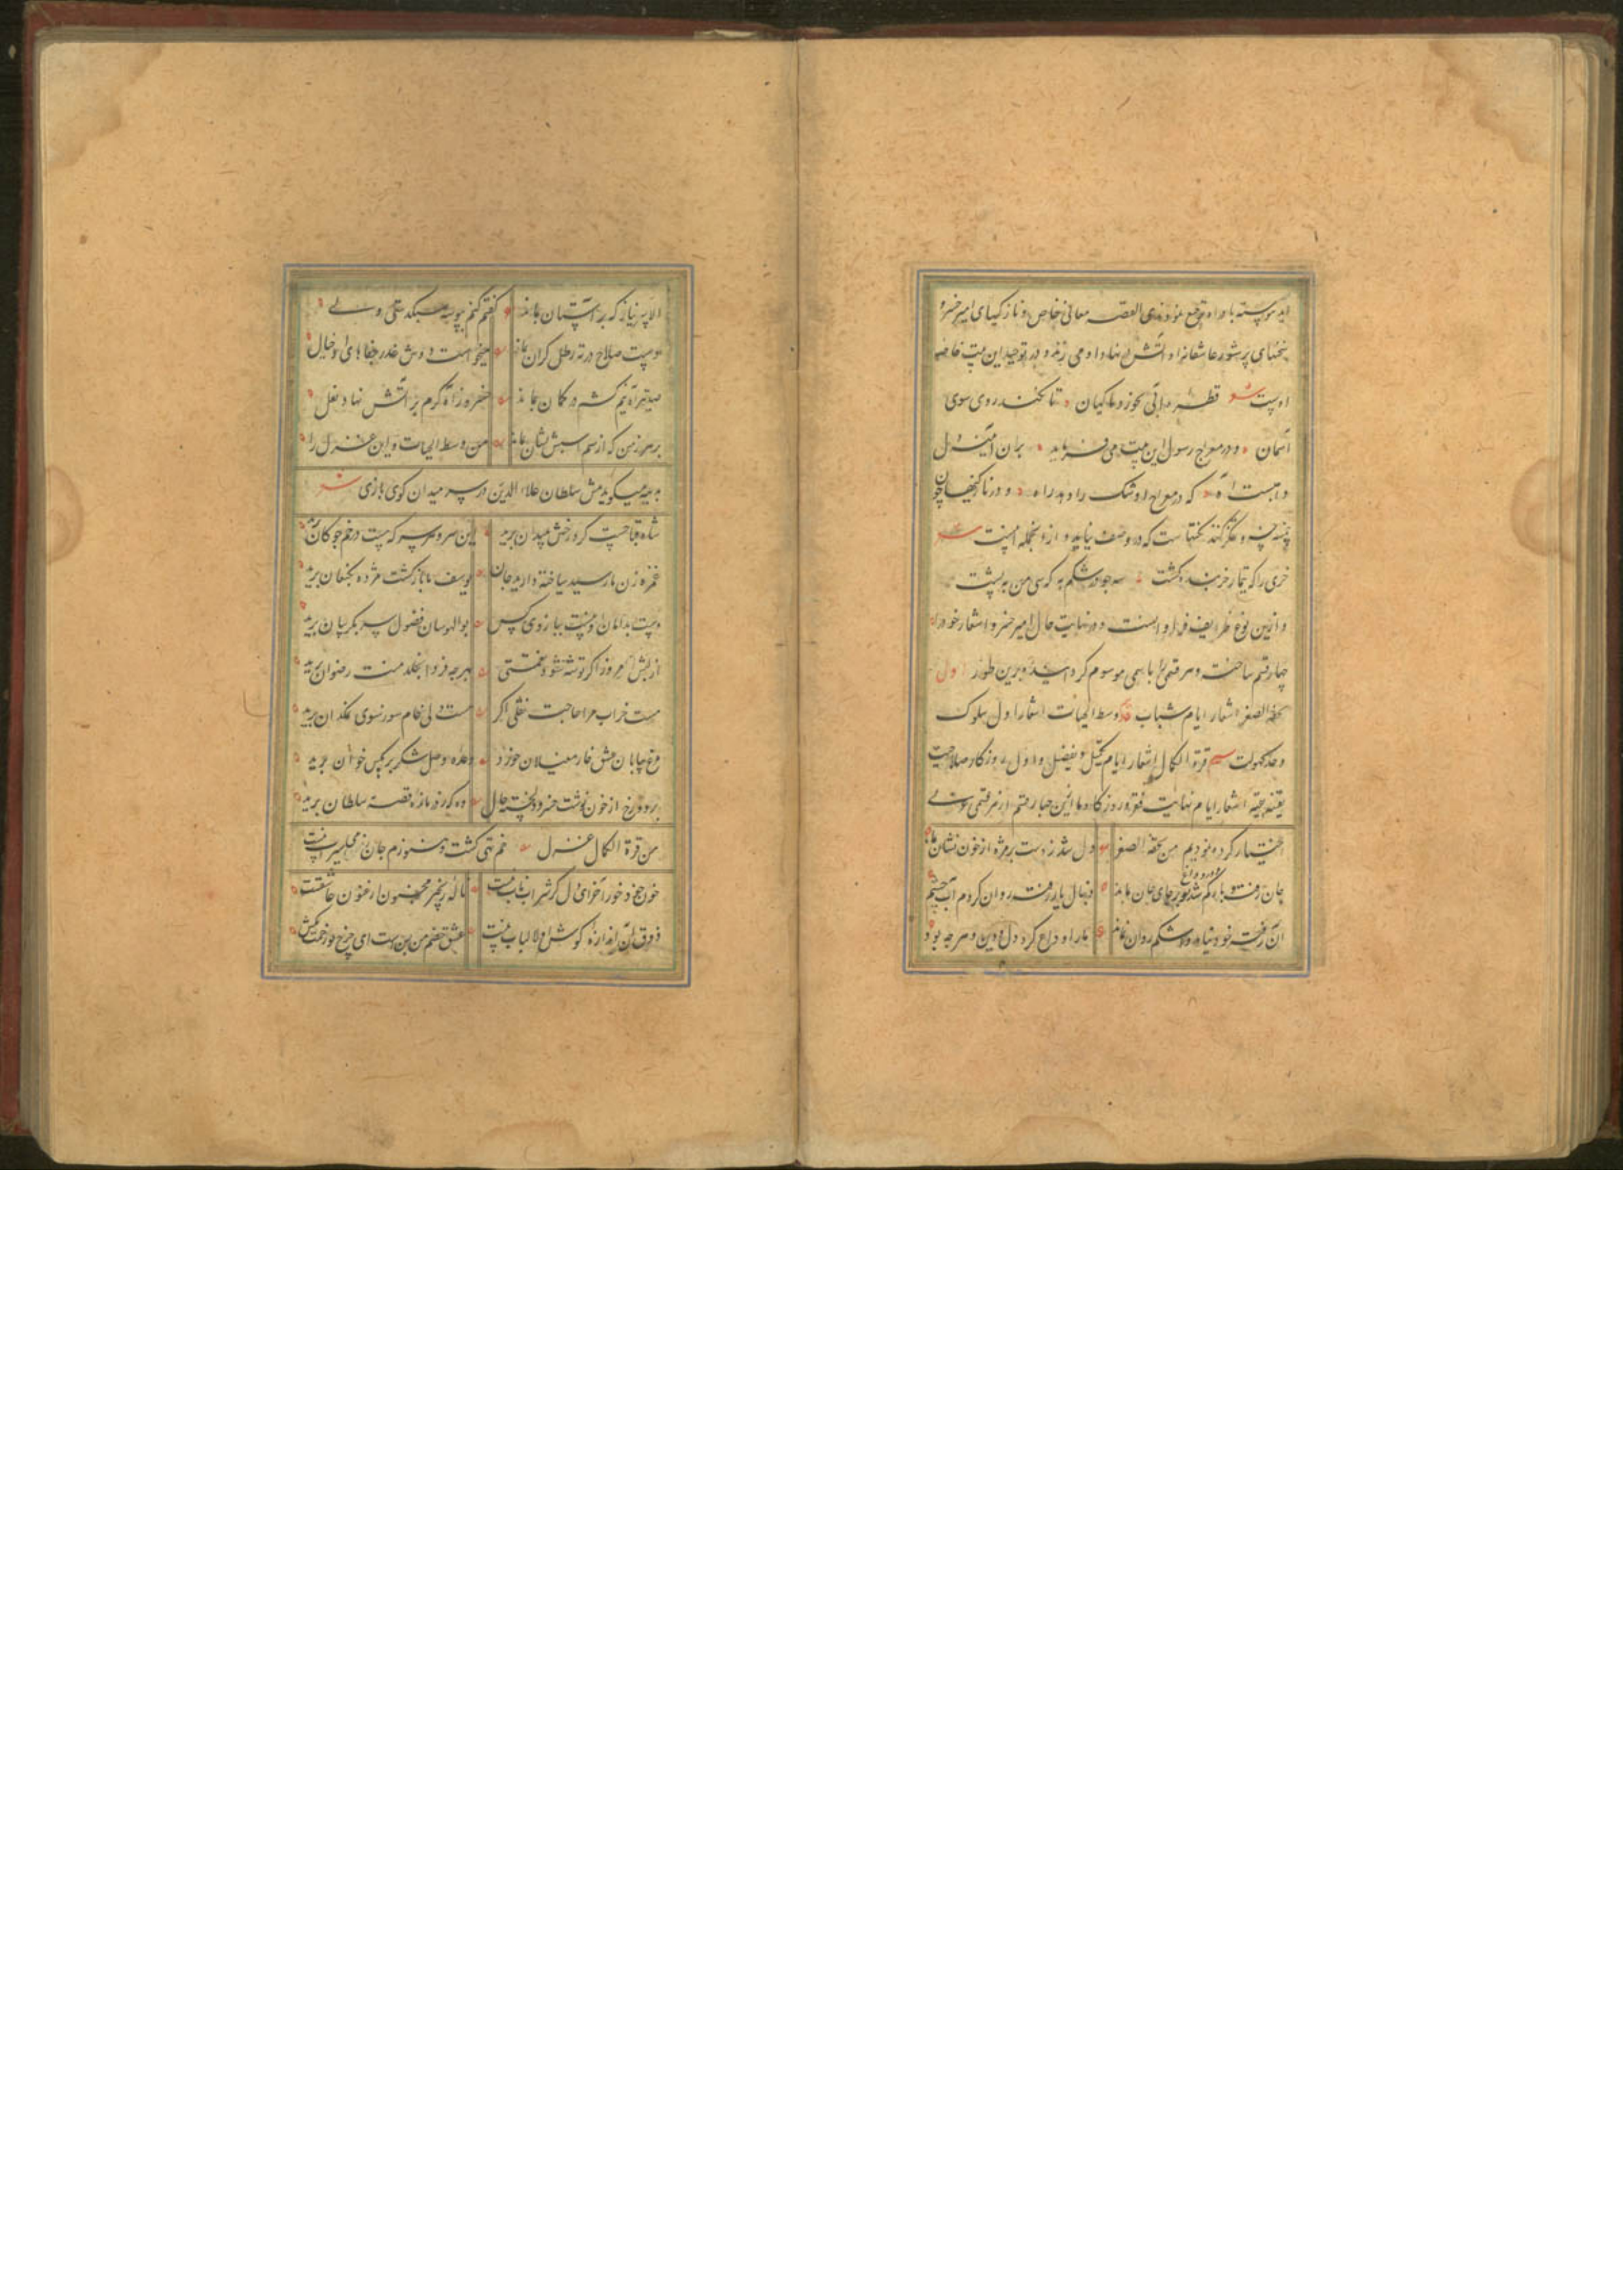 معانی خاص و نازکیهای امیر خسرو
سخنهای پرشور عاشقانه او آتش در نهاد آدمی زند و در توحید این بیت خاصه
اوست قطره آبی نخورد ماکیان تا نکند روی سوی
آسمان و در معراج رسول این بیت می فرماید
که در معراج او شک را دهد راه و در نازکیها چون
که در وصف نیاید و از آنجمله اینست
خری را که تیمار خربنده کشت جو در شکم به که سی من به پشت
و ازین نوع ظرایف فراوانست و در نهایت حال امیر خسرو اشعار خود را
چهار قسم ساخت و هر قسمی را باسمی موسوم گردانید و برین طور اول
تحفة الصغر اشعار ایام شباب وسط الحیات اشعار اول سلوک
و حد کهولت غرة الکمال اشعار ایام تکمیل و اول روزگار صلاحیت
بقیه نقیه اشعار ایام نهایت فقر و روزگار و ما ازین چهار قسم از هر قسمی
اختیار کرده بودیم من تحفة الصغر دل شد ز دست بر مژه از خون نشان بماند
جان رفت و یار گم شده بر جای جان بماند دنبال یار رفت روان کردم آب چشم
آن رفته خود نیامد و اشکم روان بماند یار او وداع کرد دل و دین و هر چه بود
که بر آستان بماند گفتم کنم
صلاح در ته رطل گران بماند میخواست دوش عذر جفاهای او خیال
صد تیر آه نیم کش در کمان بماند خسرو ز آه گرم بر آتش نهاد نعل
بر هر زمین که از سم اسبش نشان بماند من وسط الحیات و این غزل را
سلطان علاء الدین در سر میدان گوی بازی
شاه قبا چست کرد رخش بمیدان برید این سر و هر سر که هست در خم چوگان برید
غمزه زن ما رسید ساخته دارید جان یوسف ما بازگشت مژده بکنعان برید
دست بدامان او نیست ببازوی کس بوالهوسان فضول سر بگریبان برید
از لبش امروز اگر توشه شود نعمتی بهر چه فردا بخلد منت رضوان برید
مست خراب مرا حاجت نقلی اگر هست دلی خام سوز سوی نمکدان برید
مرغ بیابان عشق خار مغیلان خورد وعده وصل شکر بر مگس خوان برید
بر در و رخ از خون نوشت خسرو دلخسته حال وه که گرفتار ما قصه سلطان برید
من غرة الکمال غزل خم تهی گشت و هنوزم جان ز می سیراب نیست
خون خود خور آخر ای دل گر شراب ناب نیست ناله زنجیر مجنون ارغنون عاشقست
ذوق آن اندازه گوش اولوالالباب نیست عشق خصم من بس است ای چرخ تو زحمت مکش